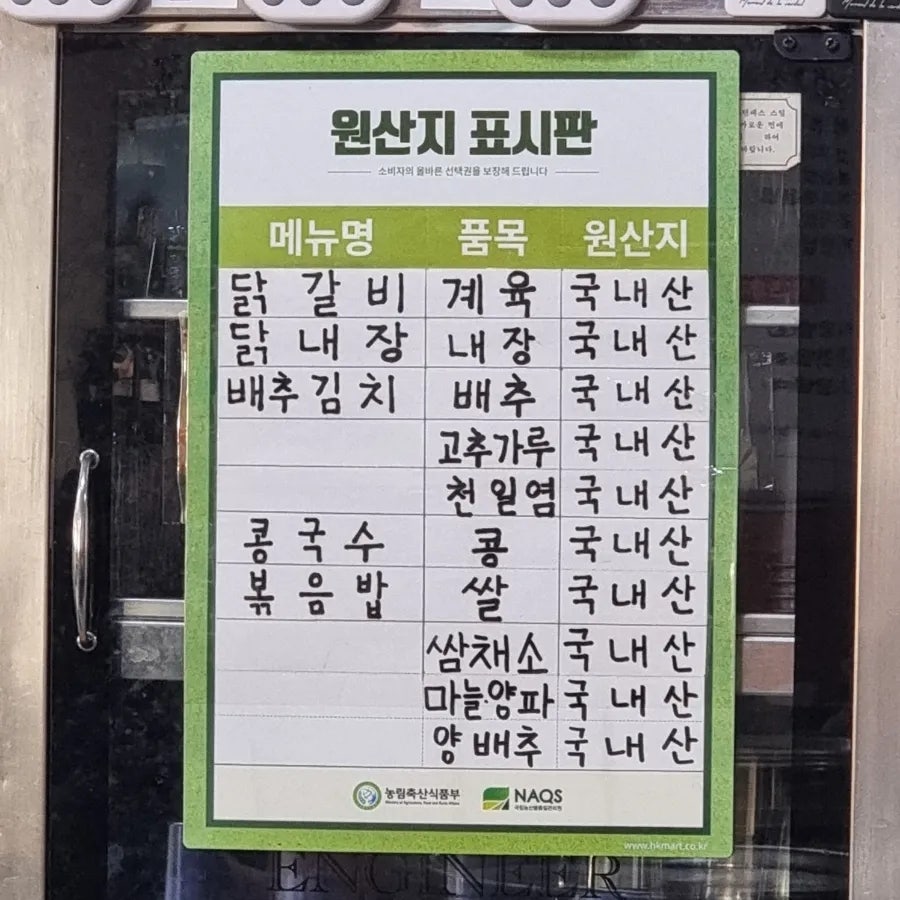 원산지 표시판
소비자의 올바른 선택권을 보장해 드립니다
메뉴명 품목 원산지
닭갈비 계육 국내산
닭내장 내장 국내산
배추김치 배추 국내산
고추가루 국내산
천일염 국내산
콩국수 콩 국내산
볶음밥 쌀 국내산
쌈채소 국내산
마늘·양파 국내산
양배추 국내산
농림축산식품부
NAQS
국립농산물품질관리원
www.hkmart.co.kr
ENGINEER